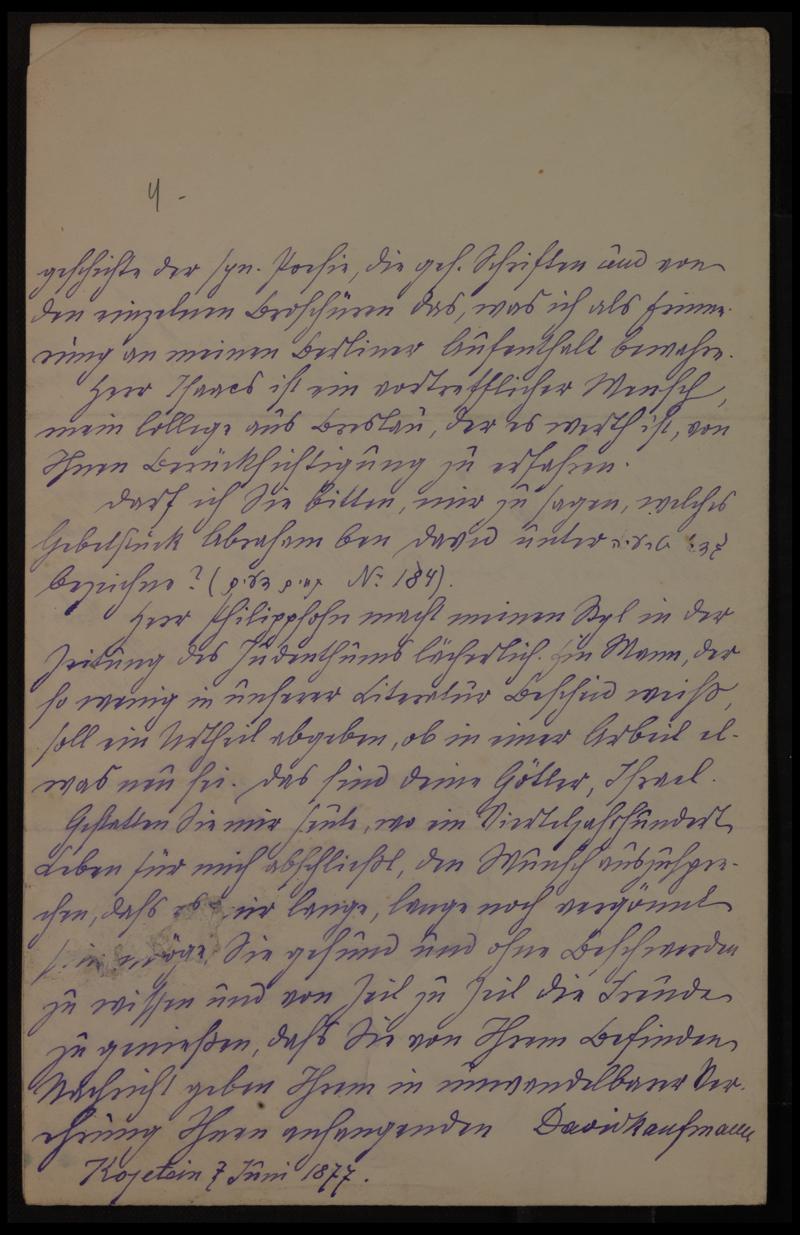 4 -
geschichte der syn. Poesie, die ges. Schriften und von
den einzelnen Broschüren das, was ich als Erinne-
rung an meinen Berliner Aufenthalt bewahre.
Herr Isaacs ist ein vortrefflicher Mensch,
mein College aus Breslau, der es werth ist, von
Ihnen Berücksichtigung zu erfahren.
Darf ich Sie bitten, mir zu sagen, welches
Gebetstück Abraham ben David unter
bezeichne? ( No. 184).
Herr Philippsohn macht meinen Styl in der
Zeitung des Judenthums lächerlich. Ein Mann, der
so wenig in unserer Literatur Bescheid weiß,
soll ein Urtheil abgeben, ob in einer Arbeit et-
was neu sei. Das sind deine Götter, Israel.
Gestatten Sie mir heute, wo ein Vierteljahrhundert
Leben für mich abschließt, den Wunsch auszuspre-
chen, dass es mir lange, lange noch vergönnt
sein möge, Sie gesund und ohne Beschwerden
zu wissen und von Zeit zu Zeit die Freude
zu genießen, dass Sie von Ihrem Befinden
Nachricht geben Ihrem in unwandelbarer Ver-
ehrung Ihnen anhangenden David Kaufmann
Kojetein 7 Juni 1877.